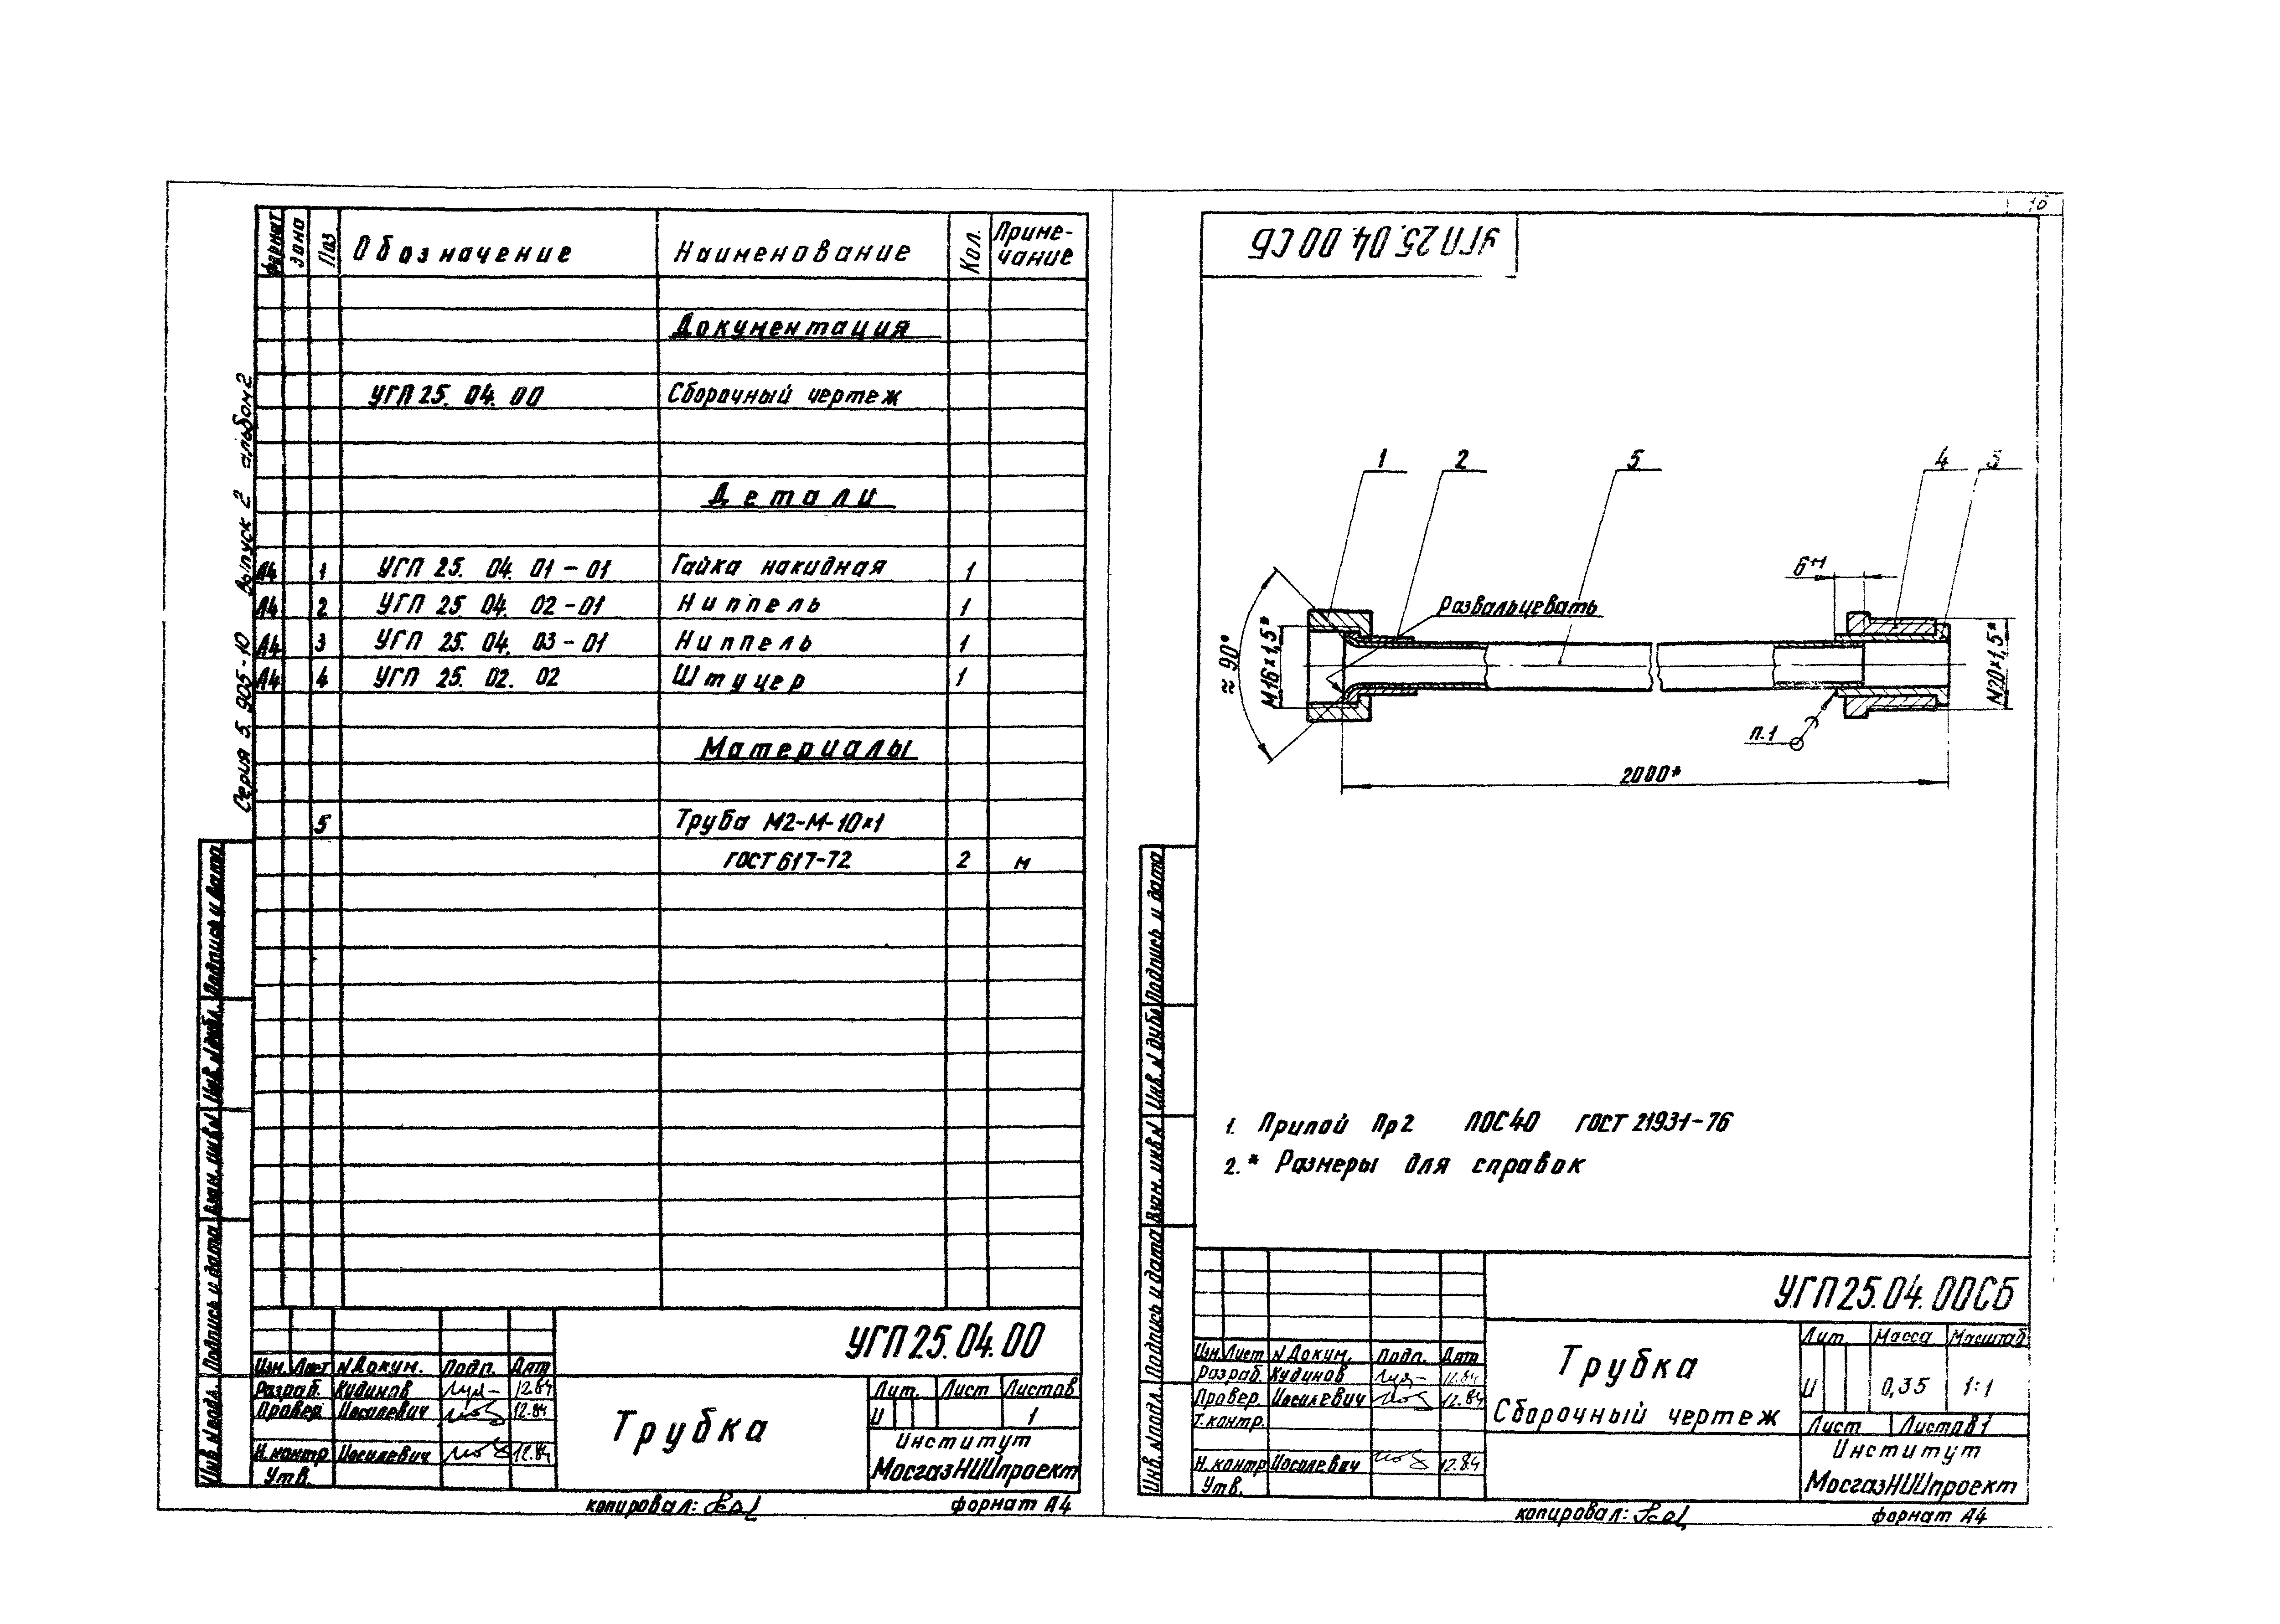 Серия 5.905-10 выпуск 2 альбом 2
Формат Зона Поз. Обозначение Наименование Кол. Приме-
чание
Документация
УГП 25. 04. 00 Сборочный чертеж
Детали
А4 1 УГП 25. 04. 01-01 Гайка накидная 1
А4 2 УГП 25 04. 02-01 Ниппель 1
А4 3 УГП 25. 04. 03-01 Ниппель 1
А4 4 УГП 25. 02. 02 Штуцер 1
Материалы
5 Труба М2-М-10×1
ГОСТ 617-72 2 м
Подпись и дата
Инв. N дубл.
Взам. инв N
Подпись и дата
Инв. N подл.
УГП 25.04.00
Изм. Лист N Докум. Подп. Дата
Разраб. Кудинов 12.84
Провер. Иосилевич 12.84
Н. контр Иосилевич 12.84
Утв.
Трубка
Лит. Лист Листов
И 1
Институт
МосгазНИИпроект
копировал:
формат А4
16
УГП 25. 04. 00 СБ
1 2 5 4 3
развальцевать
6⁺¹
≈ 90°
М16×1,5*
М20×1,5*
п.1
2000*
1. Припой Пр2 ПОС 40 ГОСТ 21931-76
2.* Размеры для справок
Подпись и дата
Инв. N дубл.
Взам. инв N
Подпись и дата
Инв. N подл.
УГП 25.04.00СБ
Изм. Лист N Докум. Подп. Дата
Разраб. Кудинов 12.84
Провер. Иосилевич 12.84
Т. контр.
Н. контр Иосилевич 12.84
Утв.
Трубка
Сборочный чертеж
Лит. Масса Масштаб
И 0,35 1:1
Лист Листов 1
Институт
МосгазНИИпроект
копировал:
формат А4